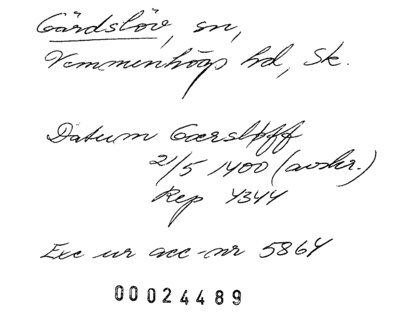 Gärdslöv, sn,
Vemmenhögs hd, Sk.
Datum Gærsløff
21/5 1400 (avskr.)
Rep 4344
Exc ur acc-nr 5864
00024489